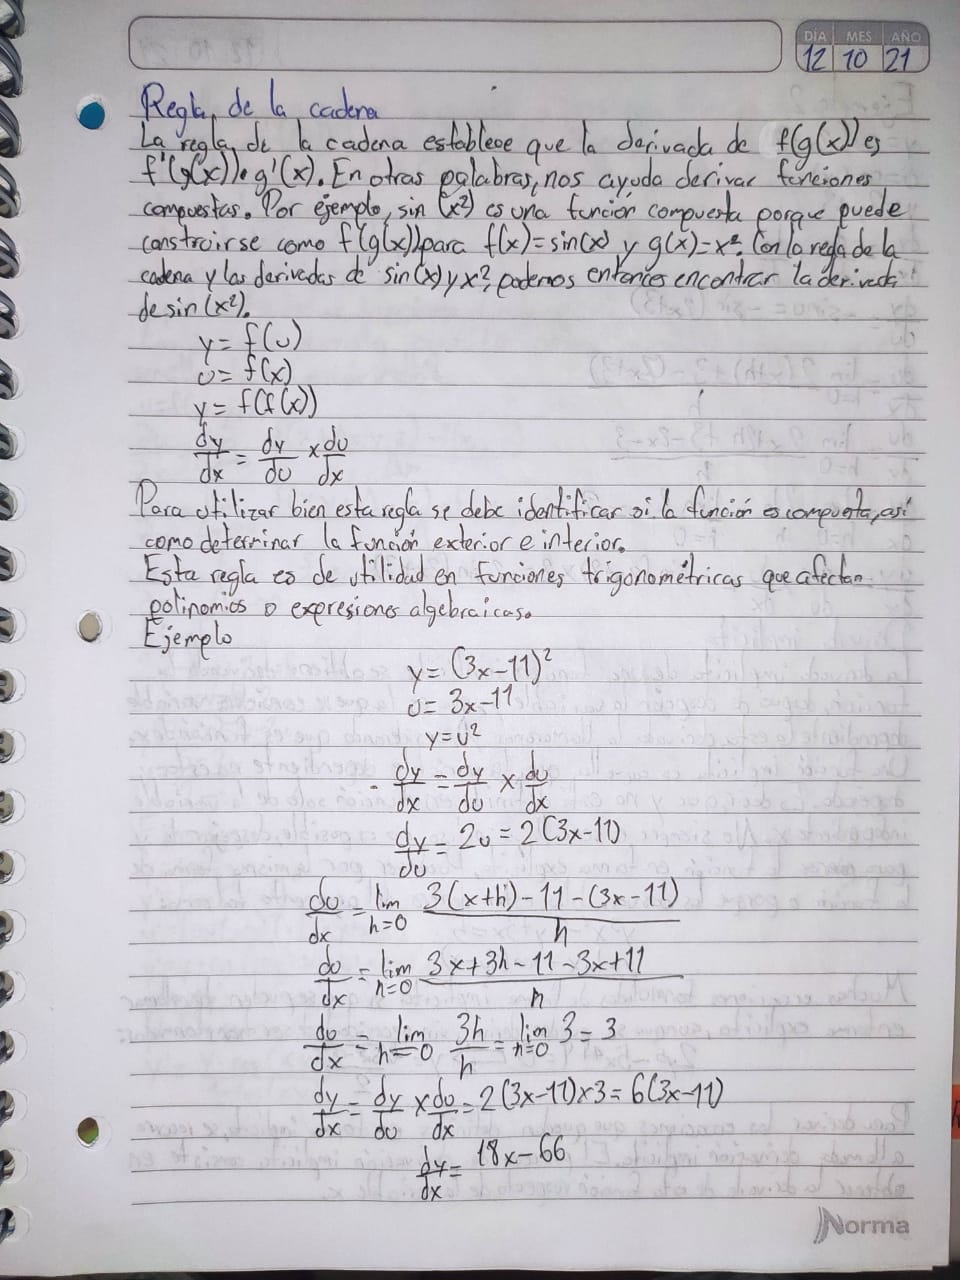 DÍA MES AÑO
12 10 21
Regla de la cadena
La regla de la cadena establece que la derivada de f(g(x)) es
f'(g(x))•g'(x). En otras palabras, nos ayuda derivar funciones
compuestas. Por ejemplo, sin (x²) es una función compuesta porque puede
construirse como f(g(x)) para f(x)=sin(x) y g(x)=x². Con la regla de la
cadena y las derivadas de sin(x) y x², podemos entonces encontrar la derivada
de sin (x²).
y= f(u)
u= f(x)
y= f(f(x))
dy/dx = dy/du x du/dx
Para utilizar bien esta regla se debe identificar si la función es compuesta, así
como determinar la función exterior e interior.
Esta regla es de utilidad en funciones trigonométricas que afectan
polinomios o expresiones algebraicas.
Ejemplo
y= (3x-11)²
u= 3x-11
y=u²
dy/dx = dy/du x du/dx
dy/du = 2u = 2(3x-11)
du/dx = lim h=0 3(x+h)-11-(3x-11)/h
du/dx = lim h=0 3x+3h-11-3x+11/h
du/dx = lim h=0 3h/h = lim h=0 3 = 3
dy/dx = dy/du x du/dx = 2(3x-11)x3 = 6(3x-11)
dy/dx = 18x-66
Norma